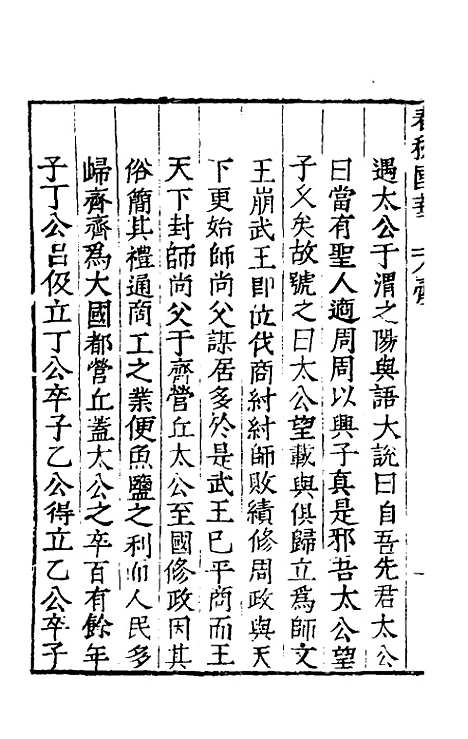 春秋國華　齊
遇太公于渭之陽與語大說曰自吾先君太公
曰當有聖人適周周以興子真是邪吾太公望
子久矣故號之曰太公望載與俱歸立爲師文
王崩武王即位伐商紂紂師敗績修周政與天
下更始師尚父謀居多於是武王已平商而王
天下封師尚父于齊營丘太公至國修政因其
俗簡其禮通商工之業便魚鹽之利而人民多
歸齊齊爲大國都營丘蓋太公之卒百有餘年
子丁公呂伋立丁公卒子乙公得立乙公卒子